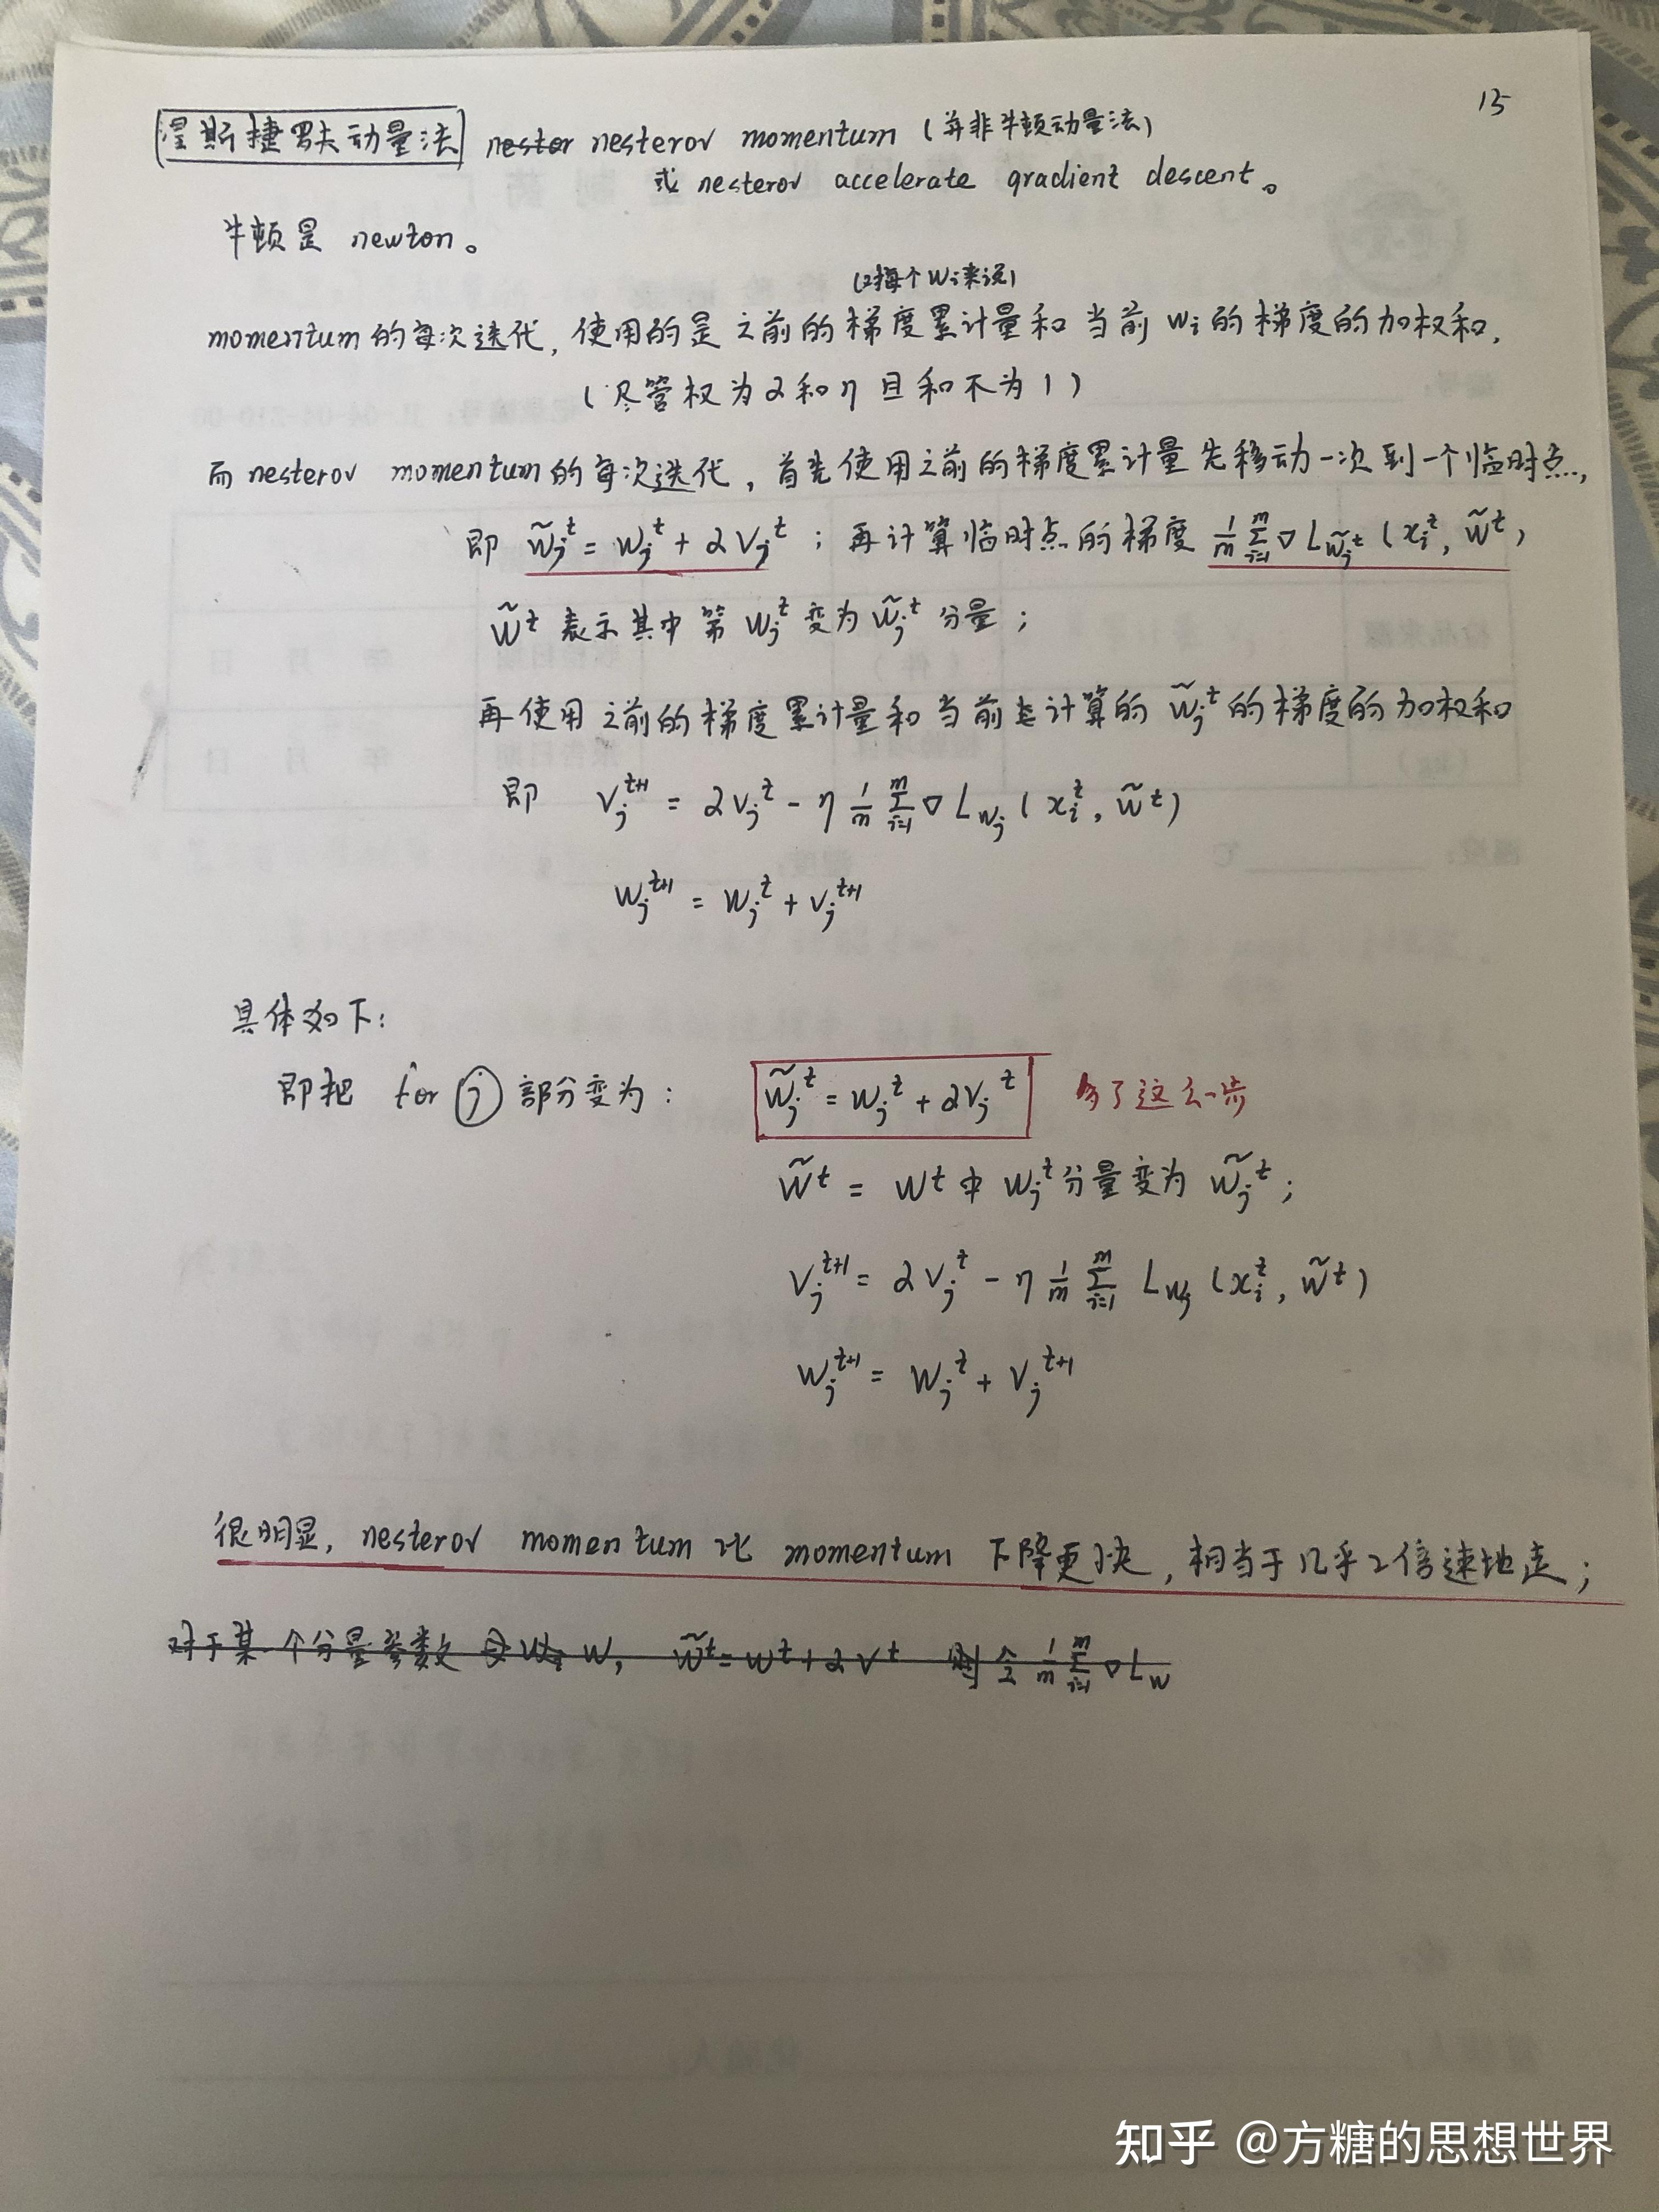 15
涅斯捷罗夫动量法 nestor nesterov momentum (并非牛顿动量法)
或 nesterov accelerate gradient descent。
牛顿是 newton。
(对每个 wᵢ来说)
momentum的每次迭代, 使用的是之前的梯度累计量和当前 wᵢ的梯度的加权和,
(尽管权为α和η且和不为1)
而nesterov momentum的每次迭代, 首先使用之前的梯度累计量先移动一次到一个临时点,
即 w̃ⱼᵗ = wⱼᵗ + αvⱼᵗ ; 再计算临时点的梯度 1/m Σᵢ₌₁ᵐ ∇L_w̃ⱼᵗ (xᵢᵗ, w̃ᵗ)
w̃ᵗ 表示其中第 wⱼᵗ 变为 w̃ⱼᵗ 分量;
再使用之前的梯度累计量和当前计算的 w̃ⱼᵗ的梯度的加权和
即 vⱼᵗ⁺¹ = αvⱼᵗ - η 1/m Σᵢ₌₁ᵐ ∇L_wⱼ (xᵢᵗ, w̃ᵗ)
wⱼᵗ⁺¹ = wⱼᵗ + vⱼᵗ⁺¹
具体如下:
即把 for ⓙ 部分变为: w̃ⱼᵗ = wⱼᵗ + αvⱼᵗ 多了这么一步
w̃ᵗ = wᵗ中 wⱼᵗ分量变为 w̃ⱼᵗ;
vⱼᵗ⁺¹ = αvⱼᵗ - η 1/m Σᵢ₌₁ᵐ L_wⱼ (xᵢᵗ, w̃ᵗ)
wⱼᵗ⁺¹ = wⱼᵗ + vⱼᵗ⁺¹
很明显, nesterov momentum 比 momentum 下降更快, 相当于几乎2倍速地走;
对于某一个分量参数 w, w̃ᵗ = wᵗ + αvᵗ 则令 1/m Σᵢ₌₁ᵐ ∇L_w
知乎 @方糖的思想世界